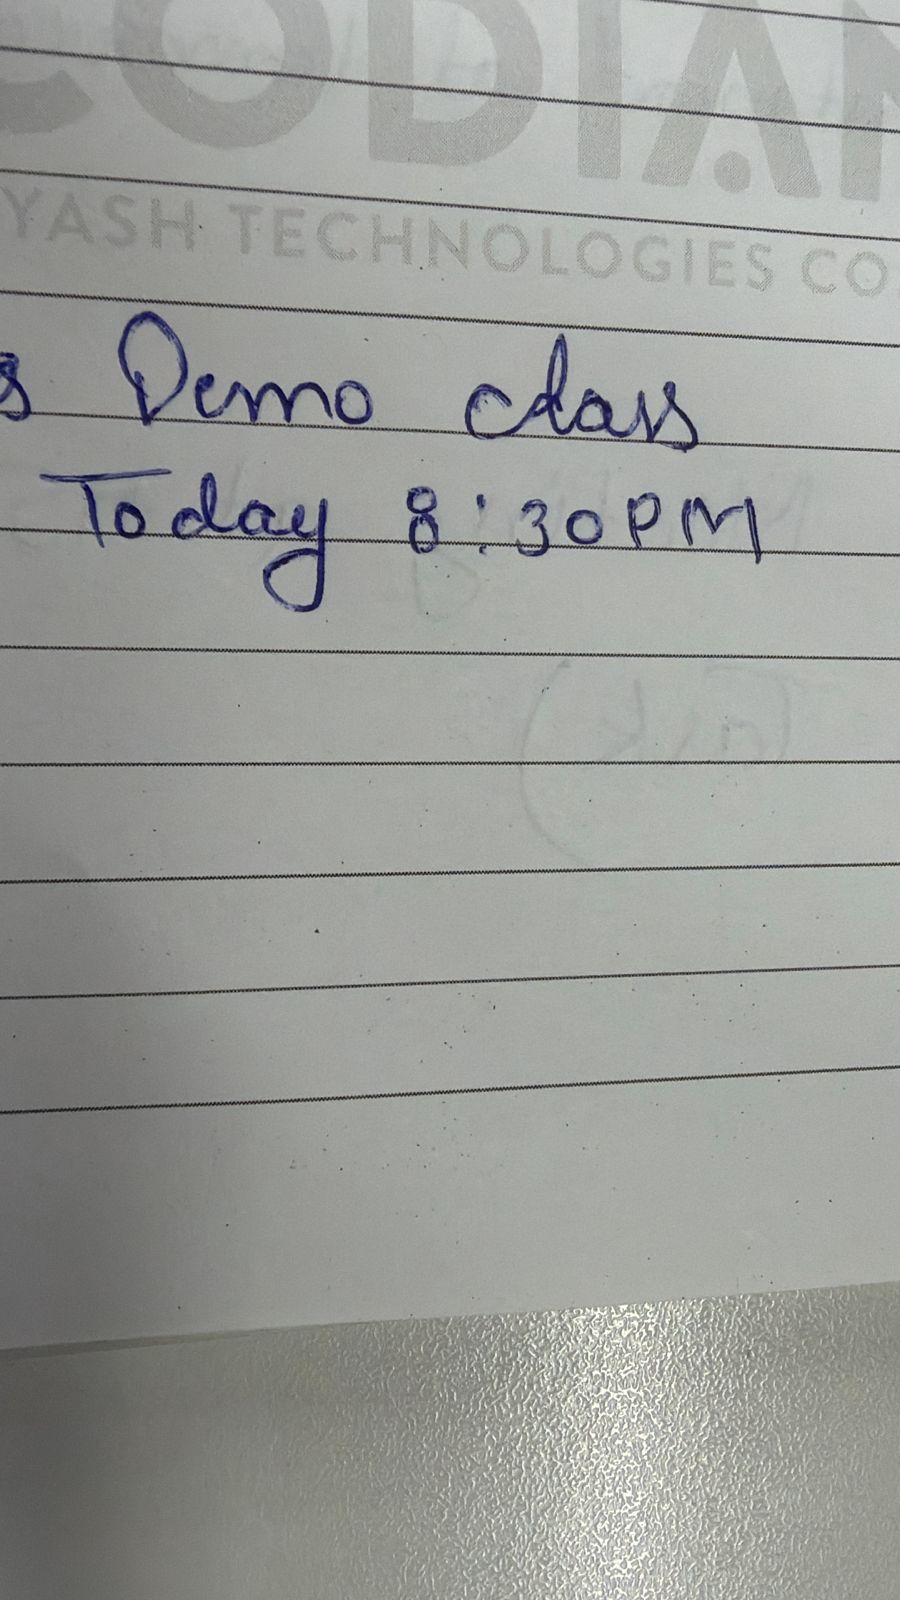 CODIAN
YASH TECHNOLOGIES CO
s Demo class
Today 8:30PM